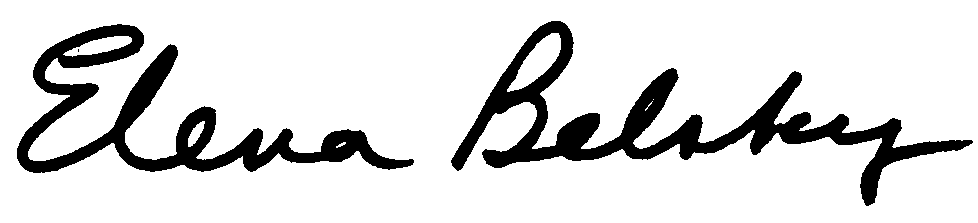 Elena Belsky